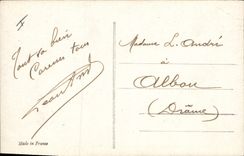 Tout va bien
Caresses tous!
Madame L. André
à
Albon
(Drôme)
Made in France